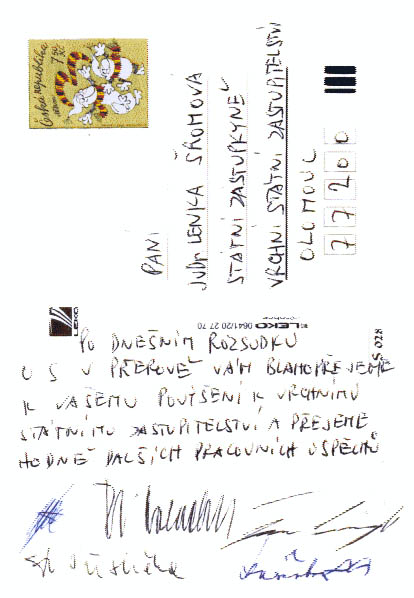 Česká republika
7,50 Kč
PANÍ
JUDr LENKA ŠROMOVÁ
STÁTNÍ ZÁSTUPKYNĚ
VRCHNÍ STÁTNÍ ZASTUPITELSTVÍ
OLOMOUC
77200
LEKO
LEKO 0641/20 27 70
S 028
PO DNEŠNÍM ROZSUDKU
OS V PŘEROVĚ VÁM BLAHOPŘEJEME
K VAŠEMU POVÝŠENÍ K VRCHNÍMU
STÁTNÍMU ZASTUPITELSTVÍ A PŘEJEME
HODNĚ DALŠÍCH PRACOVNÍCH ÚSPĚCHŮ